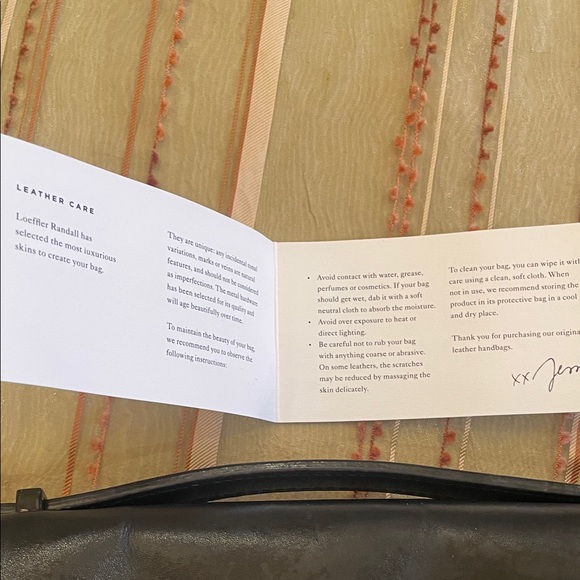 LEATHER CARE
Loeffler Randall has
selected the most luxurious
skins to create your bag.
They are unique: any incidental tonal
variations, marks or veins are natural
features, and should not be considered
as imperfections. The metal hardware
has been selected for its quality and
will age beautifully over time.
To maintain the beauty of your bag,
we recommend you to observe the
following instructions:
• Avoid contact with water, grease,
perfumes or cosmetics. If your bag
should get wet, dab it with a soft
neutral cloth to absorb the moisture.
• Avoid over exposure to heat or
direct lighting.
• Be careful not to rub your bag
with anything coarse or abrasive.
On some leathers, the scratches
may be reduced by massaging the
skin delicately.
To clean your bag, you can wipe it with
care using a clean, soft cloth. When
not in use, we recommend storing the
product in its protective bag in a cool
and dry place.
Thank you for purchasing our origina
leather handbags.
xx Jess